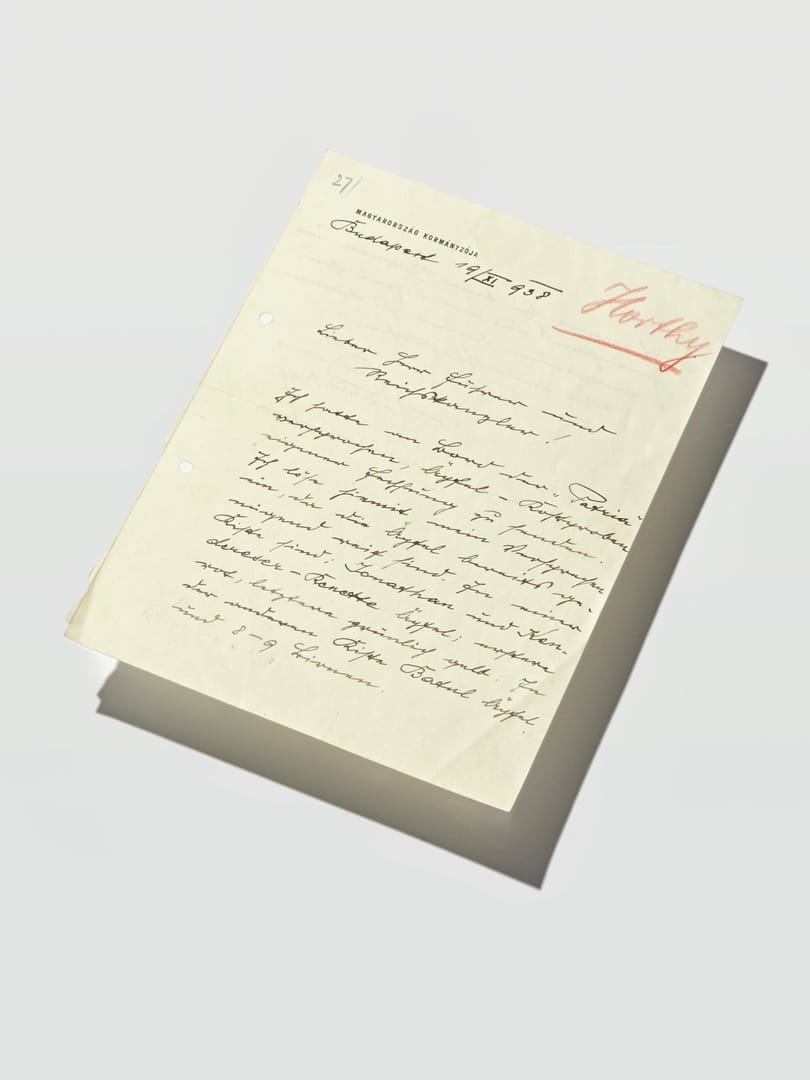 27/
MAGYARORSZÁG KORMÁNYZÓJA
Budapest 19/XI 938
Horthy
Lieber Herr Führer und
Reichskanzler!
Ich hatte an Bord der "Patria"
versprochen, Äpfel-Kostproben
eigener Fechsung zu senden.
Ich löse hiemit mein Versprechen
ein, da die Äpfel bereits ge-
nügend reif sind. In einer
Kiste sind: Jonathan und
Renette Äpfel; erstere
rot, letztere grünlich gelb. In
der anderen Kiste Batul Äpfel
und 8-9 Birnen.